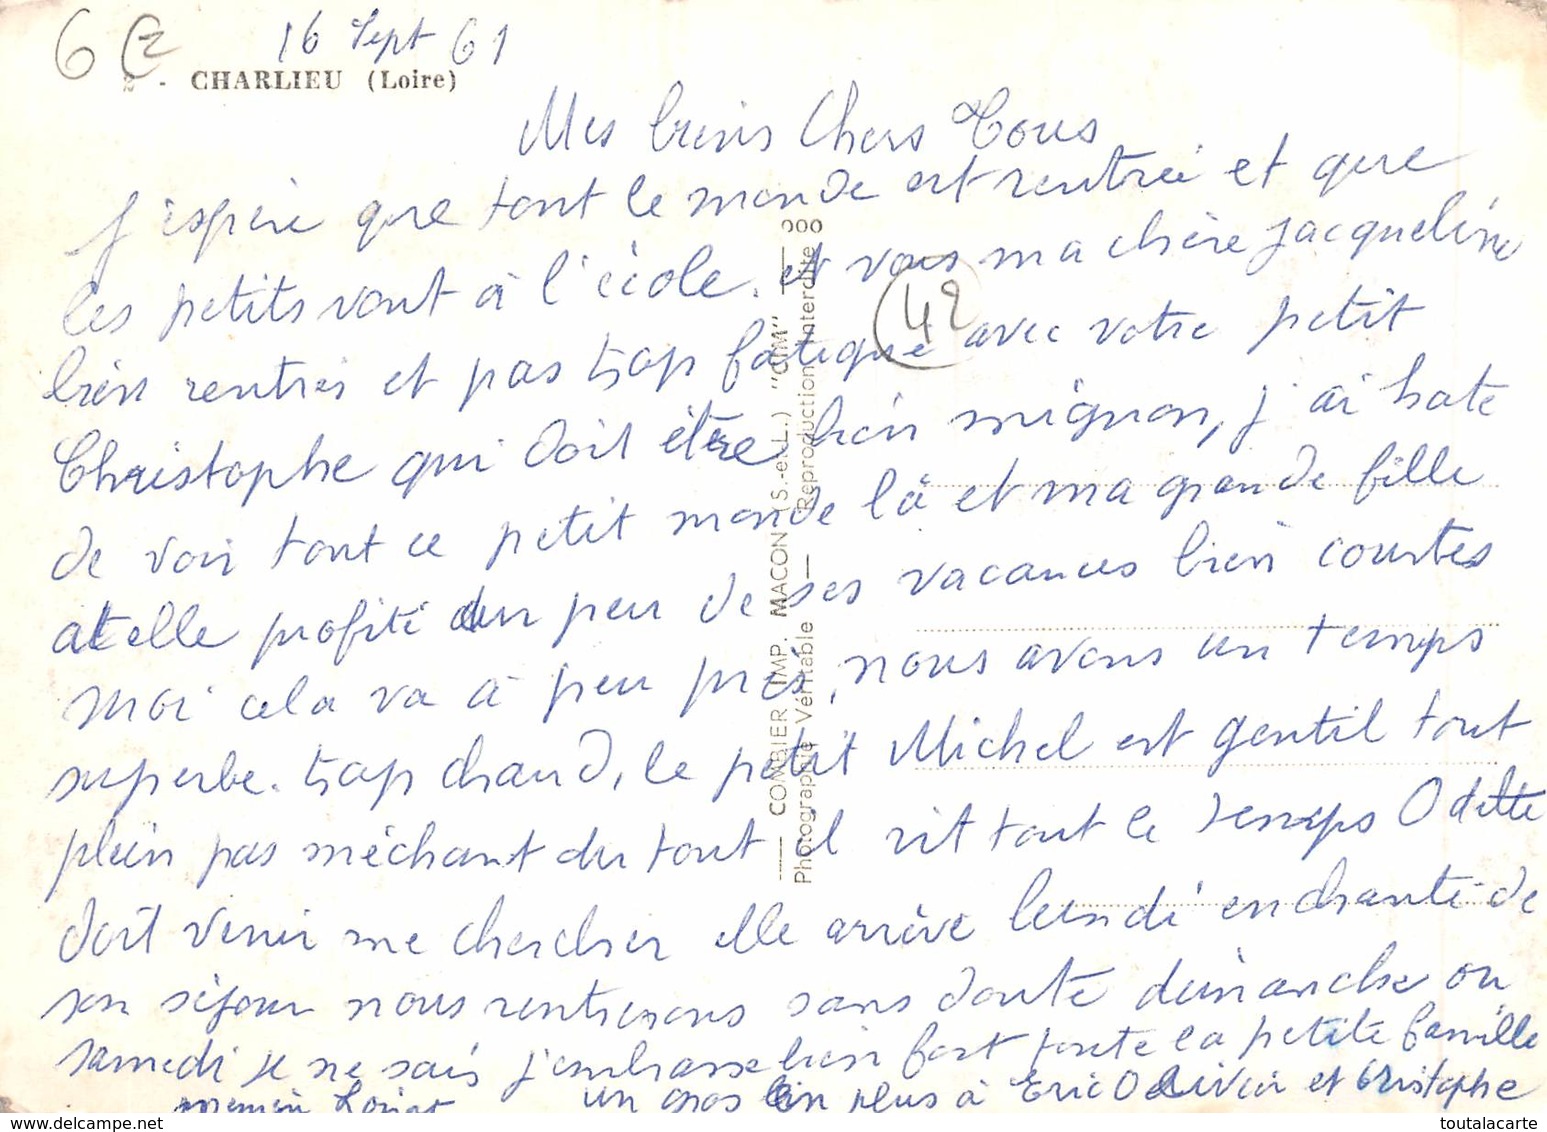 6 E
16 Sept 61
2 - CHARLIEU (Loire)
Mes biens Chers Tous
J'espère que tout le monde est rentrée et que
les petits vont à l'école. et vous ma chère Jacqueline
bien rentrés et pas trop fatigué avec votre petit
Christophe qui doit être bien mignon, j'ai hate
de voir tout ce petit monde là et ma grande fille
at elle profité d'un peu de ses vacances bien courtes
moi cela va à peu près, nous avons un temps
superbe. trop chaud, le petit Michel est gentil tout
plein pas méchant du tout il rit tout le temps Odette
doit venir me chercher elle arrive lundi enchanté de
son séjour nous rentrerons sans doute dimanche ou
samedi je ne sais j'embrasse bien fort toute la petite famille
un gros bin plus à Eric Olivier et Christophe
memen
42
COMBIER IMP. MACON (S.-et-L.) "CIM"
Photographie Véritable — Reproduction Interdite
www.delcampe.net
toutalacarte